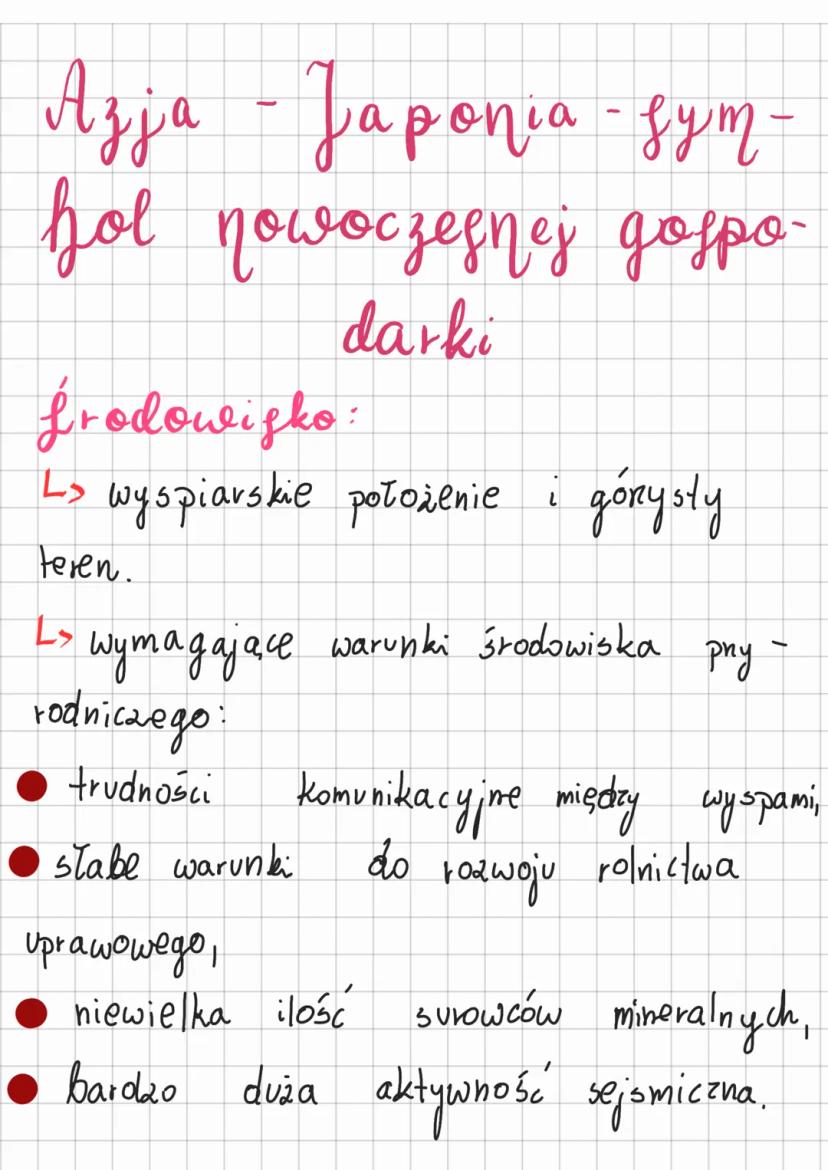 Azja - Japonia - sym-
bol nowoczesnej gospo-
darki
Środowisko:
↳ wyspiarskie położenie i górzysty
teren.
↳ wymagające warunki środowiska przy-
rodniczego:
● trudności komunikacyjne między wyspami,
● słabe warunki do rozwoju rolnictwa
uprawowego,
● niewielka ilość surowców mineralnych,
● bardzo duża aktywność sejsmiczna.